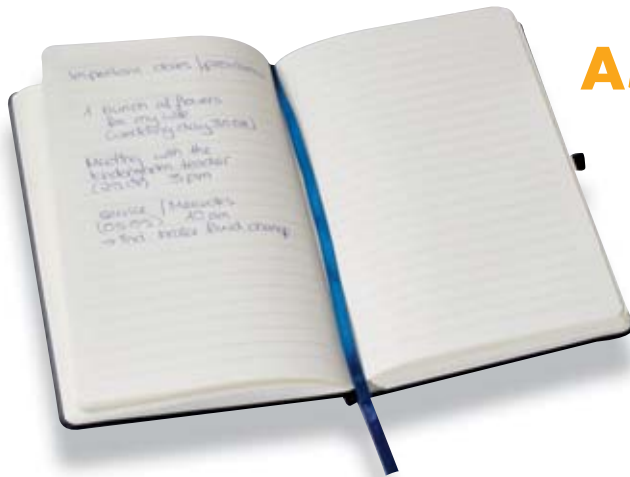 Important dates /
1 bunch of flowers
for my wife
(wedding day
Meeting with the
kindergarten teacher
(25.04) 3 pm
Service / Mercedes
(05.05) 10 am
→ incl. brake fluid change
A